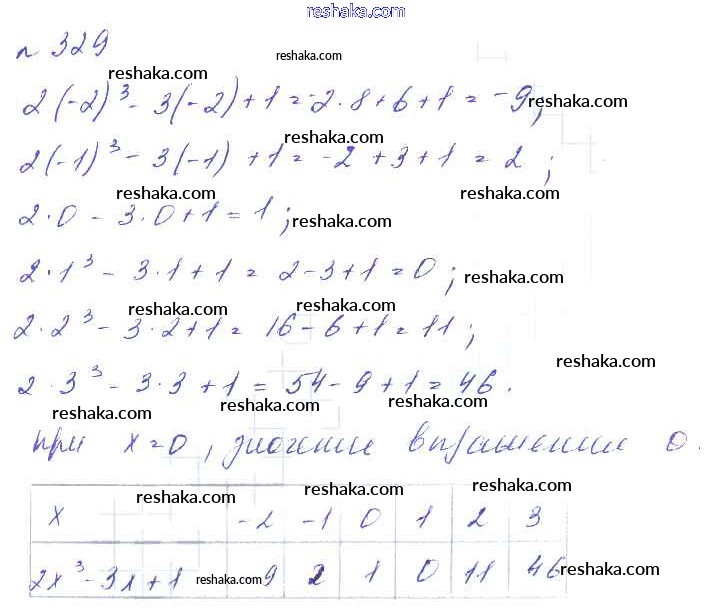 reshaka.com
№ 329
reshaka.com
reshaka.com
2(-2)³ - 3(-2) + 1 = -2·8 + 6 + 1 = -9; reshaka.com
reshaka.com
2(-1)³ - 3(-1) + 1 = -2 + 3 + 1 = 2;
reshaka.com reshaka.com
2·0 - 3·0 + 1 = 1; reshaka.com
2·1³ - 3·1 + 1 = 2 - 3 + 1 = 0; reshaka.com
reshaka.com reshaka.com
2·2³ - 3·2 + 1 = 16 - 6 + 1 = 11;
reshaka.com
2·3³ - 3·3 + 1 = 54 - 9 + 1 = 46.
reshaka.com reshaka.com
при x=0, значение выражения 0.
reshaka.com reshaka.com reshaka.com
x -2 -1 0 1 2 3
2x³-3x+1 reshaka.com -9 2 1 0 11 46 reshaka.com